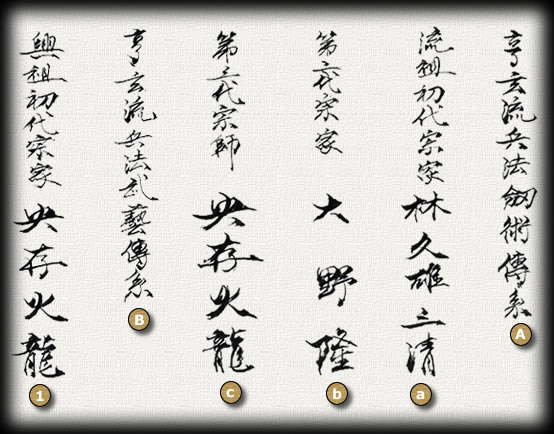 亨玄流兵法劔術傳系
A
流祖初代宗家林久雄三清
a
第二代宗家大野隆
b
第三代宗師央存火龍
c
亨玄流兵法武藝傳系
B
興祖初代宗家央存火龍
1